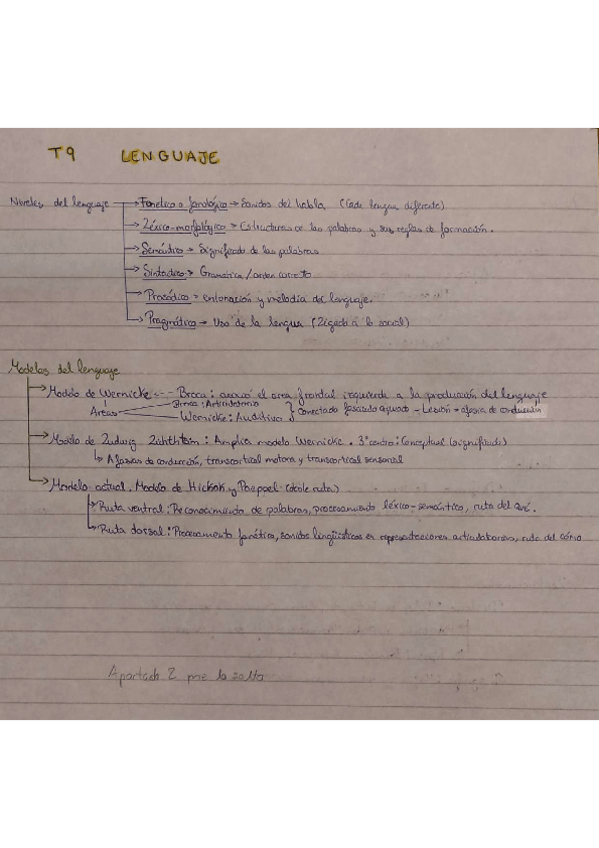 T9 LENGUAJE
Niveles del lenguaje → Fonético o fonológico → Sonidos del habla (Cada lengua diferente)
→ Léxico-morfológico → Estructuras de las palabras y sus reglas de formación.
→ Semántico → Significado de las palabras
→ Sintáctico → Gramática / orden correcto
→ Prosódico → entonación y melodía del lenguaje.
→ Pragmático → Uso de la lengua (Ligado a lo social)
Modelos del lenguaje
→ Modelo de Wernicke --- Broca: asoció el area frontal izquierda a la producción del lenguaje
Areas Broca: Articulatorio
Wernicke: Auditiva } Conectado fascículo arqueado → Lesión → afasia de conducción
→ Modelo de Ludwig Lichtheim: Amplia modelo Wernicke. 3º centro: Conceptual (significado)
↳ Afasias de conducción, transcortical motora y transcortical sensorial
→ Modelo actual. Modelo de Hickok y Poeppel (doble ruta)
→ Ruta ventral: Reconocimiento de palabras, procesamiento léxico-semántico, ruta del qué.
→ Ruta dorsal: Procesamiento fonético, sonidos lingüísticos en representaciones articulatorias, ruta del cómo
Apartado 2 me lo salto